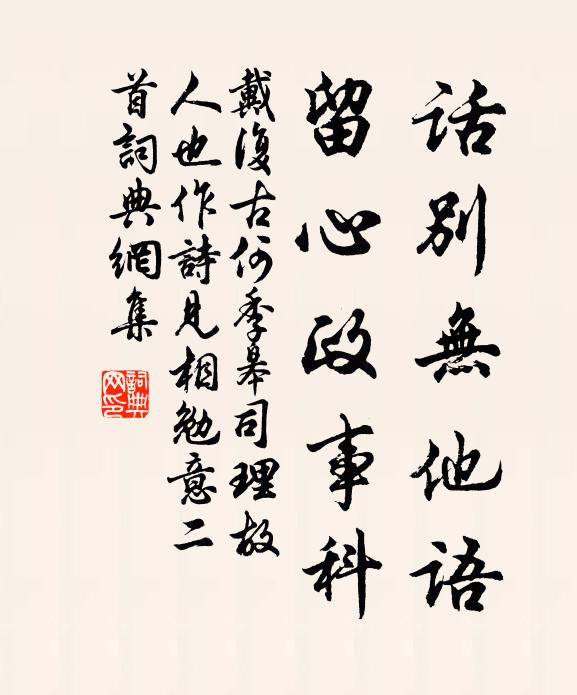 話別無他語
留心政事科
戴復古何季皋司理故
人也作詩見相勉意二
首詞典網集
詞典網印